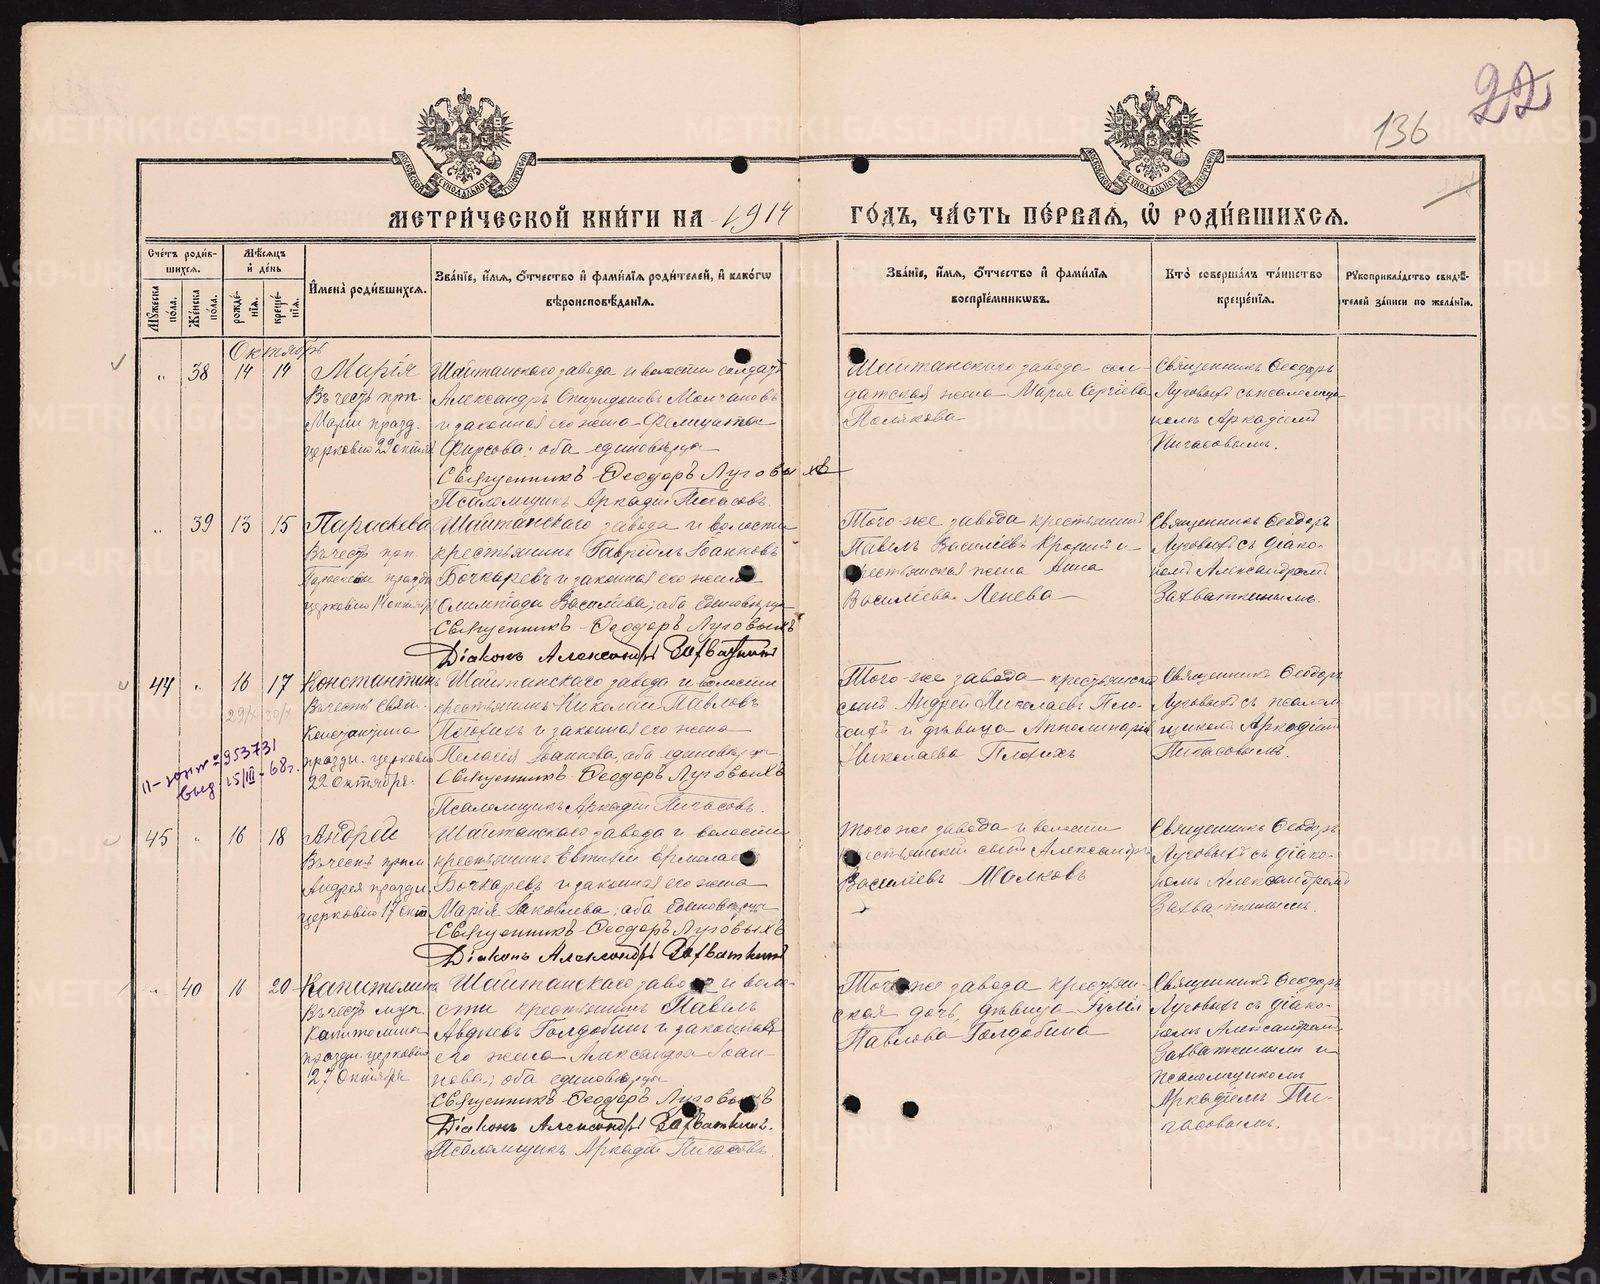 22
136
МОСКОВСКОЙ СѴНОДАЛЬНОЙ ТИПОГРАФІИ
МОСКОВСКОЙ СѴНОДАЛЬНОЙ ТИПОГРАФІИ
МЕТРИ́ЧЕСКОЙ КНИ́ГИ НА 1914 ГО́ДЪ, ЧА́СТЬ ПЕ́РВАЯ, Ѽ РОДИ́ВШИХСЯ.
Сче́тъ роди́в-
шихся.
Му́жеска по́ла.
Же́нска по́ла.
Мѣ́сяцъ
и҆ де́нь
рожде́-
нїя.
креще́-
нїя.
И҆мена̀ роди́вшихся.
Зва́нїе, и҆́мя, ѻ҆́тчество и҆ фами́лїя роди́телей, и҆ како́гѡ
вѣроисповѣ́данїя.
Зва́нїе, и҆́мя, ѻ҆́тчество и҆ фами́лїя
воспрїе́мникѡвъ.
Кто̀ соверша́лъ та́инство
креще́нїя.
Рꙋкоприкла́дство свидѣ́-
телей за́писи по жела́нїю.
Октябрь
" 38 14 14 Марія
Въ честь прп.
Маріи празд.
церковію 22 октяб
Шайтанскаго завода и волости солдатъ
Александръ Спиридоновъ Молчановъ
и законная его жена
Фирсова; оба единовѣрцы
Священникъ Ѳеодоръ Луговыхъ
Псаломщикъ Аркадій Пигасовъ.
Шайтанскаго завода сол-
датская жена Марья Сергіева
Полякова
Священникъ Ѳеодоръ
Луговыхъ съ псаломщи-
комъ Аркадіемъ
Пигасовымъ.
" 39 13 15 Параскева
Въ честь прп.
Параскевы праздн.
церковію 14 октября
Шайтанскаго завода и волости
крестьянинъ Гавріилъ Іоанновъ
Бочкаревъ и законная его жена
Олимпіада Васильева; оба единовѣрцы
Священникъ Ѳеодоръ Луговыхъ
Діаконъ Александръ Захваткинъ
Того-же завода крестьянинъ
Павелъ Василіевъ и
крестьянская жена Анна
Василіева Ленева
Священникъ Ѳеодоръ
Луговыхъ съ діако-
номъ Александромъ
Захваткинымъ.
44 " 16 17 Константинъ
29/X 30/X
Въ честь свят.
Константина
праздн. церковію
22 Октября.
II-ЮП № 953731
выд 15/III-68г.
Шайтанскаго завода и волости
крестьянинъ Николай Павловъ
Плохихъ и законная его жена
Пелагія Іоаннова; оба единовѣрцы
Священникъ Ѳеодоръ Луговыхъ
Псаломщикъ Аркадій Пигасовъ.
Того-же завода крестьянскій
сынъ Андрей Николаевъ Пло-
хихъ и дѣвица Апполинарія
Николаева Плохихъ
Священникъ Ѳеодоръ
Луговыхъ съ псалом
щикомъ Аркадіемъ
Пигасовымъ.
45 " 16 18 Андрей
Въ честь прпм.
Андрея праздн.
церковію 17 окт
Шайтанскаго завода и волости
крестьянинъ Евтихій Ермолаевъ
Бочкаревъ и законная его жена
Марія Іаковлева; оба единовѣрцы
Священникъ Ѳеодоръ Луговыхъ
Діаконъ Александръ Захваткинъ
Того же завода и волости
крестьянскій сынъ Александръ
Василіевъ Малковъ
Священникъ Ѳеодоръ
Луговыхъ съ діако-
номъ Александромъ
Захваткинымъ.
" 40 20 Капитолина
Въ честь муч.
Капитолины
праздн. церковію
27 Октября
Шайтанскаго завода и воло-
сти крестьянинъ Павелъ
Авдѣевъ Голдобинъ и законная
его жена Александра Іоан-
нова; оба единовѣрцы
Священникъ Ѳеодоръ Луговыхъ
Діаконъ Александръ Захваткинъ.
Псаломщикъ Аркадій Пигасовъ.
Того же завода крестьян-
ская дочь, дѣвица
Павлова Голдобина
Священникъ Ѳеодоръ
Луговыхъ съ діако-
номъ Александромъ
Захваткинымъ и
псаломщикомъ
Аркадіемъ Пи-
гасовымъ.